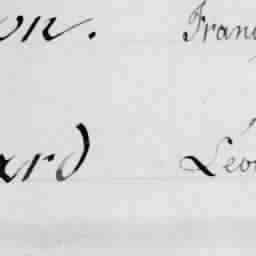 on. Fran
ard Léo